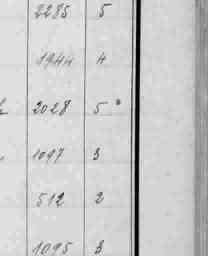 2285 5
1944 4
2028 5
1097 3
512 2
1095 3